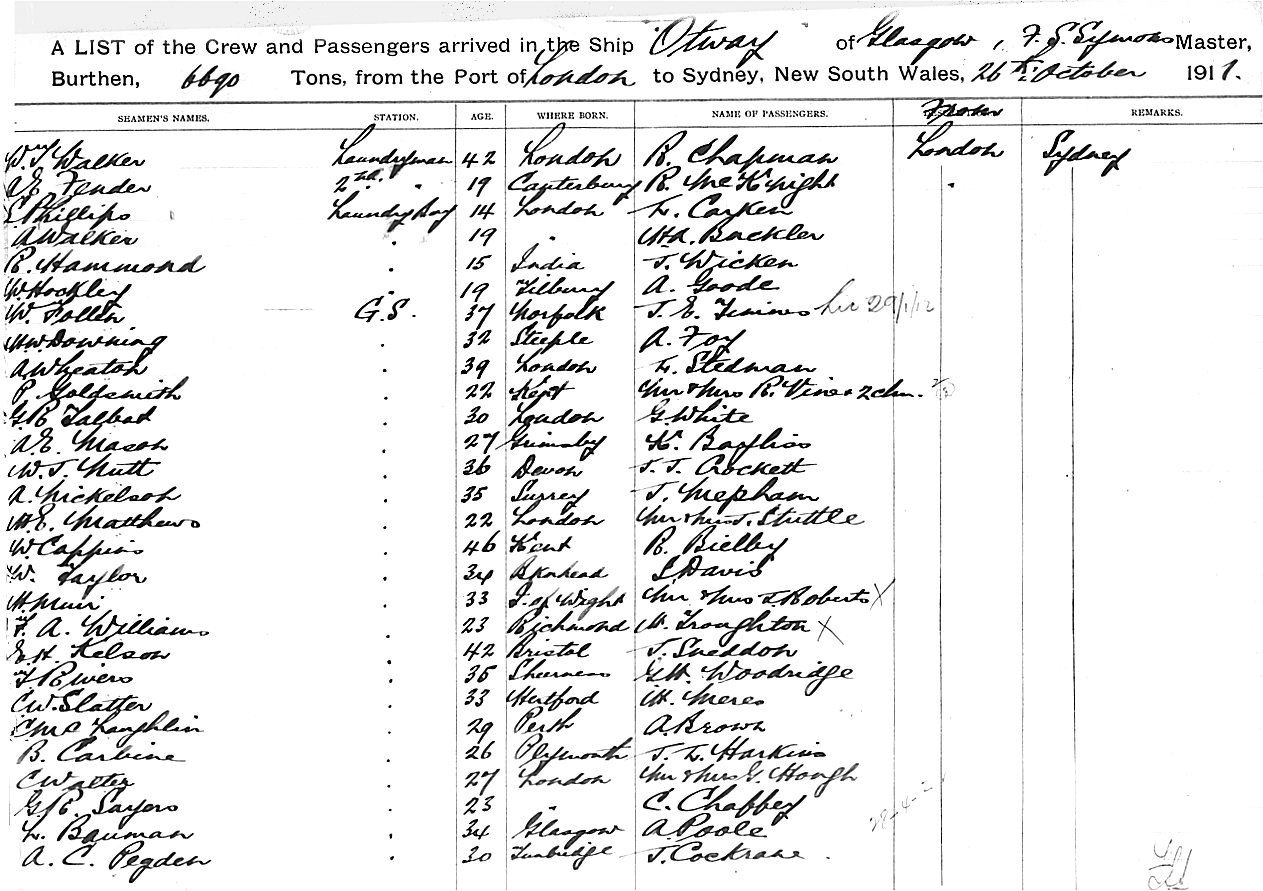 A LIST of the Crew and Passengers arrived in the Ship Otway of Glasgow, F. S. Symons Master,
Burthen, 6690 Tons, from the Port of London to Sydney, New South Wales, 26th October 1911.
SEAMEN'S NAMES. STATION. AGE. WHERE BORN. NAME OF PASSENGERS. From REMARKS.
W. J. Walker Laundryman 42 London R. Chapman London Sydney
A E. Fender 2nd. " 19 Canterbury R. McKnight "
S Phillips Laundry Boy 14 London L. Carken
A Walker " 19 " Buckler
R. Hammond " 15 India J. Wicken
W Hockley " 19 Tilbury A. Goode
W. Follen G.S. 37 Norfolk J. E. Timms 29/1/12
H W Downing " 32 Steeple A. Foy
A Wheaton " 39 London L. Stedman
P. Goldsmith " 22 Kent Mr & Mrs R. Vine & 2 chn.
G R Talbot " 30 London G. White
A. E. Mason " 27 Grimsby K. Bayliss
W. J. Nutt " 36 Devon J. J. Crockett
A. Nickelson " 35 Surrey J. Mepham
H. E. Matthews " 22 London Mr & Mrs J. Stuttle
W. Cappins " 46 Kent R. Bielby
W. Taylor " 34 B'kenhead S Davis
H. Muir " 33 I. of Wight Mr & Mrs J. Roberts X
F. A. Williams " 23 Richmond W. Troughton X
E H Kelson " 42 Bristol J. Sneddon
F Rivers " 35 Sheerness G. H. Woodridge
C W. Slatter " 33 Hertford W. Meres
C McLaughlin " 29 Perth A. Brown
B. Carbine " 26 Plymouth J. L. Harkins
C Walter " 27 London Mr & Mrs G. Hough
G. R. Sayers " 23 " C. Chaffey
L. Bauman " 34 Glasgow A. Poole
A. C. Pegden " 30 Tunbridge J. Cockrane